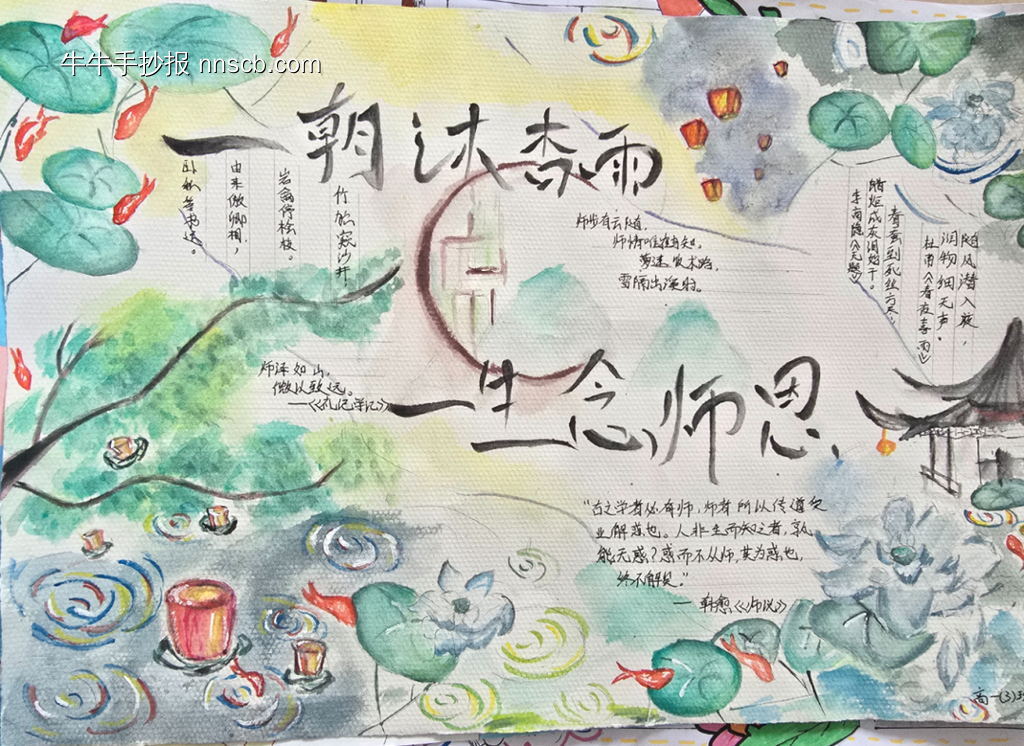 牛牛手抄报 nnscb.com
一朝沐杏雨
竹的窥沙井，
岩禽停桧枝。
由来傲卿相，
卧稳等书迟。
师步有云随，
雪隔出深时。
随风潜入夜，
润物细无声。
杜甫《春夜喜雨》
春蚕到死丝方尽，
腊炬成灰泪始干。
李商隐《无题》
师泽如山，
微以致远。
——《礼记学记》
一生念师恩
“古之学者必有师，师者所以传道受
业解惑也。人非生而知之者，孰
能无惑？惑而不从师，其为惑也，
终不解矣。”
— 韩愈《师说》
高一(3)